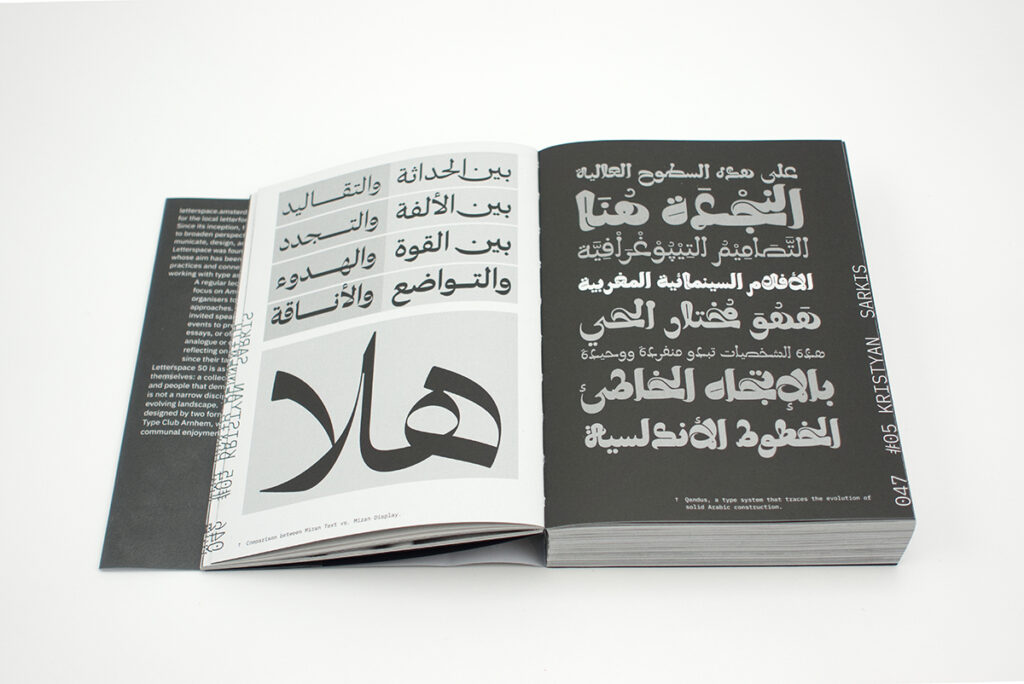 letterspace.amsterd
for the local letterfor
Since its inception, t
to broaden perspect
municate, design, a
Letterspace was foun
whose aim has been
practices and conne
working with type an
A regular lec
focus on Am
organisers to
approaches.
invited speak
events to pr
essays, or of
analogue or
reflecting on
since their ta
Letterspace 50 is as
themselves: a collec
and people that dem
is not a narrow discip
evolving landscape.
designed by two form
Type Club Arnhem, w
communal enjoymen
046 #05 KRISTYAN SARKIS
بين الحداثة والتقاليد
بين الألفة والتجدد
بين القوة والهدوء
والتواضع والأناقة
هلا
↑ Comparison between Mizan Text vs. Mizan Display.
على هذه السطوح العالية
النَجْدَة هُنَا
التَّصَامِيْمُ التِيْبُوغْرَافِيَّة
الأفلام السينمائية المغربية
هَهُوَ مُختار الحي
هذه الشخصيات تبدو منفردة ووحيدة
بالإتجاه الخاطئ
الخطوط الأندلسية
↑ Qandus, a type system that traces the evolution of
solid Arabic construction.
047 #05 KRISTYAN SARKIS